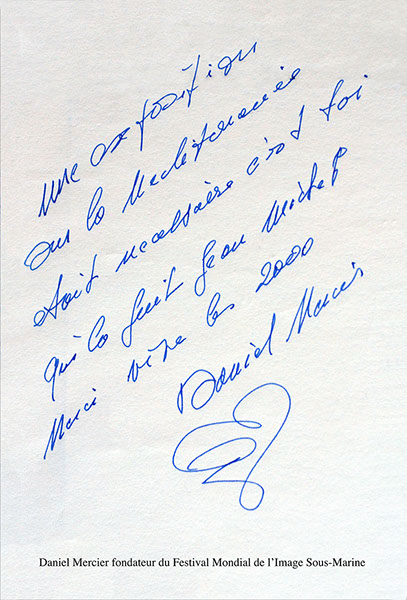 Une exposition
sur la Mediterranée
était necessaire c'est toi
qui la fait Jean Michel
Merci vive les 2000
Daniel Mercier
Daniel Mercier fondateur du Festival Mondial de l'Image Sous-Marine